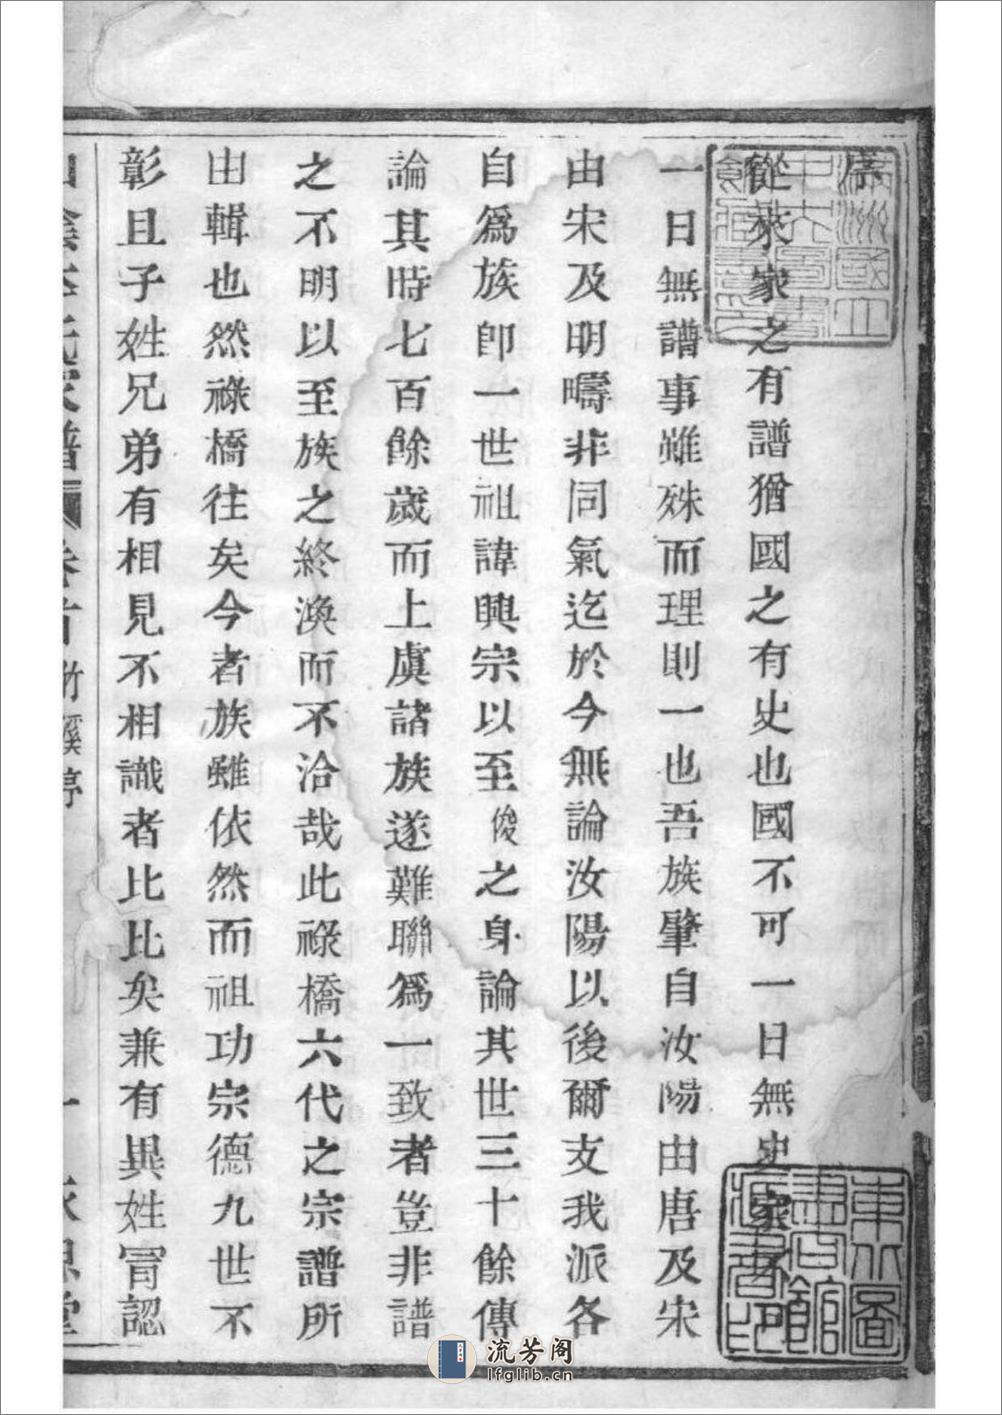 序
從來家之有譜猶國之有史也國不可一日無史家不可
一日無譜事雖殊而理則一也吾族肇自汝陽由唐及宋
由宋及明疇非同氣迄於今無論汝陽以後爾支我派各
自爲族卽一世祖諱興宗以至俊之身論其世三十餘傳
論其時七百餘歲而上虞諸族遂難聯爲一致者豈非譜
之不明以至族之終渙而不洽哉此祿橋六代之宗譜所
由輯也然祿橋往矣今者族雖依然而祖功宗德九世不
彰且子姓兄弟有相見不相識者比比矣兼有異姓冐認
氏家譜 卷首 一
東北圖書館藏書印
流芳阁
lfglib.cn